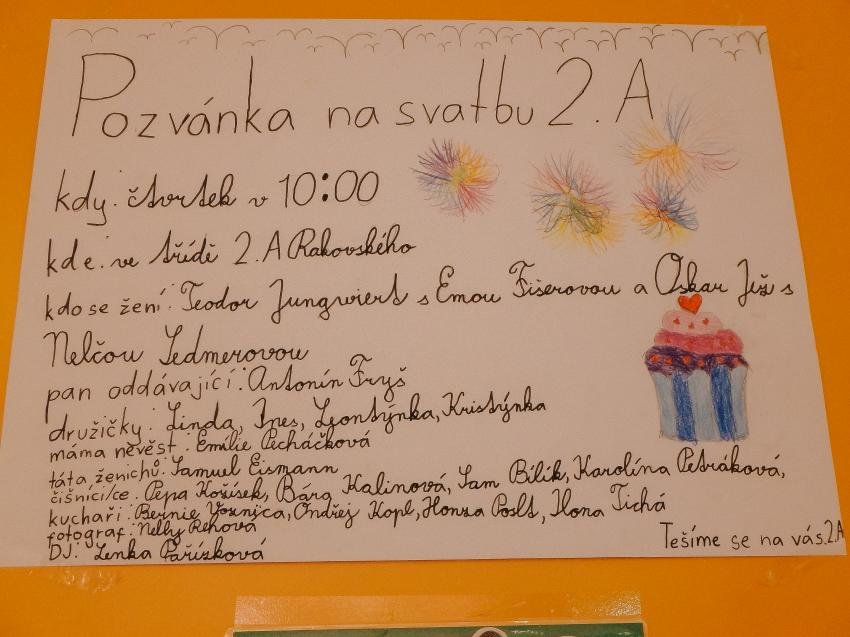 Pozvánka na svatbu 2. A
kdy: čtvrtek v 10:00
kde: ve třídě 2. A Rakovského
kdo se žení: Teodor Jungwiert s Emou Fišerovou a Oskar Již s
Nelčou Sedmerovou
pan oddávající: Antonín Fryš
družičky: Linda, Ines, Leontýnka, Kristýnka
máma nevěst: Emílie Pecháčková
táta ženichů: Samuel Eismann
číšníci/ce: Pepa Košísek, Bára Kalinová, Sam Bílik, Karolína Petráková,
kuchaři: Bernie Ondřej Kopl, Honza Ilona Tichá
fotograf: Nelly Řehová
DJ: Lenka Pařísková
Těšíme se na vás. 2.A